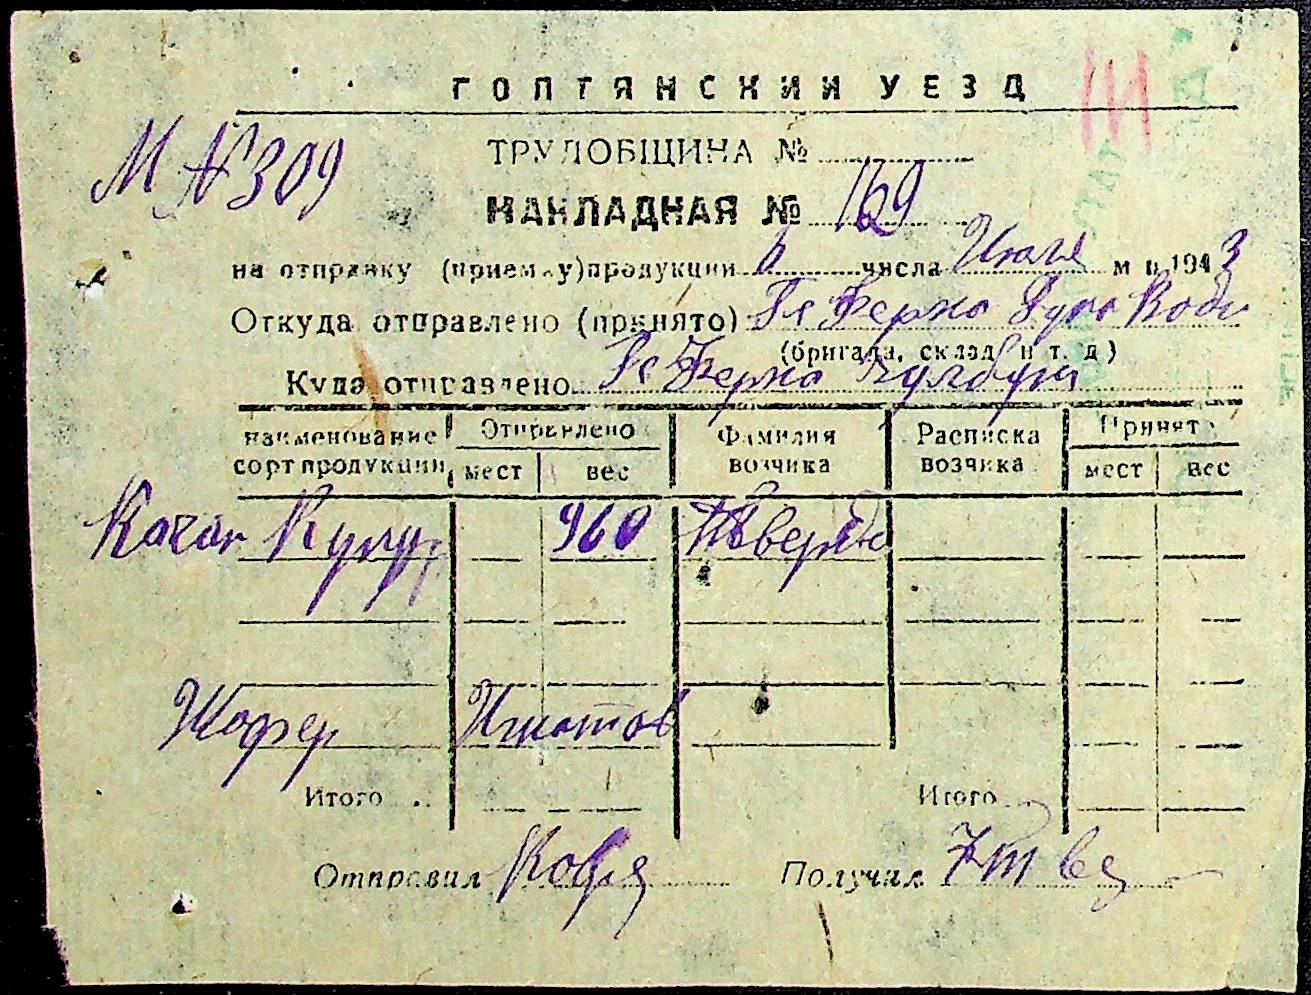 ГОПТЯНСКИЙ УЕЗД
М №309
ТРУДОБЩИНА №
НАКЛАДНАЯ № 169
на отправку (приемку) продукции 6 числа м ц 1943
Откуда отправлено (принято) Ферма Воды
(бригада, склад и т. д)
Куда отправлено Ферма
наименование сорт продукции Отправлено мест вес Фамилия возчика Расписка возчика Принято мест вес
Качан Кукур 960
Шофер Игнатов
Итого Итого
Отправил Получил